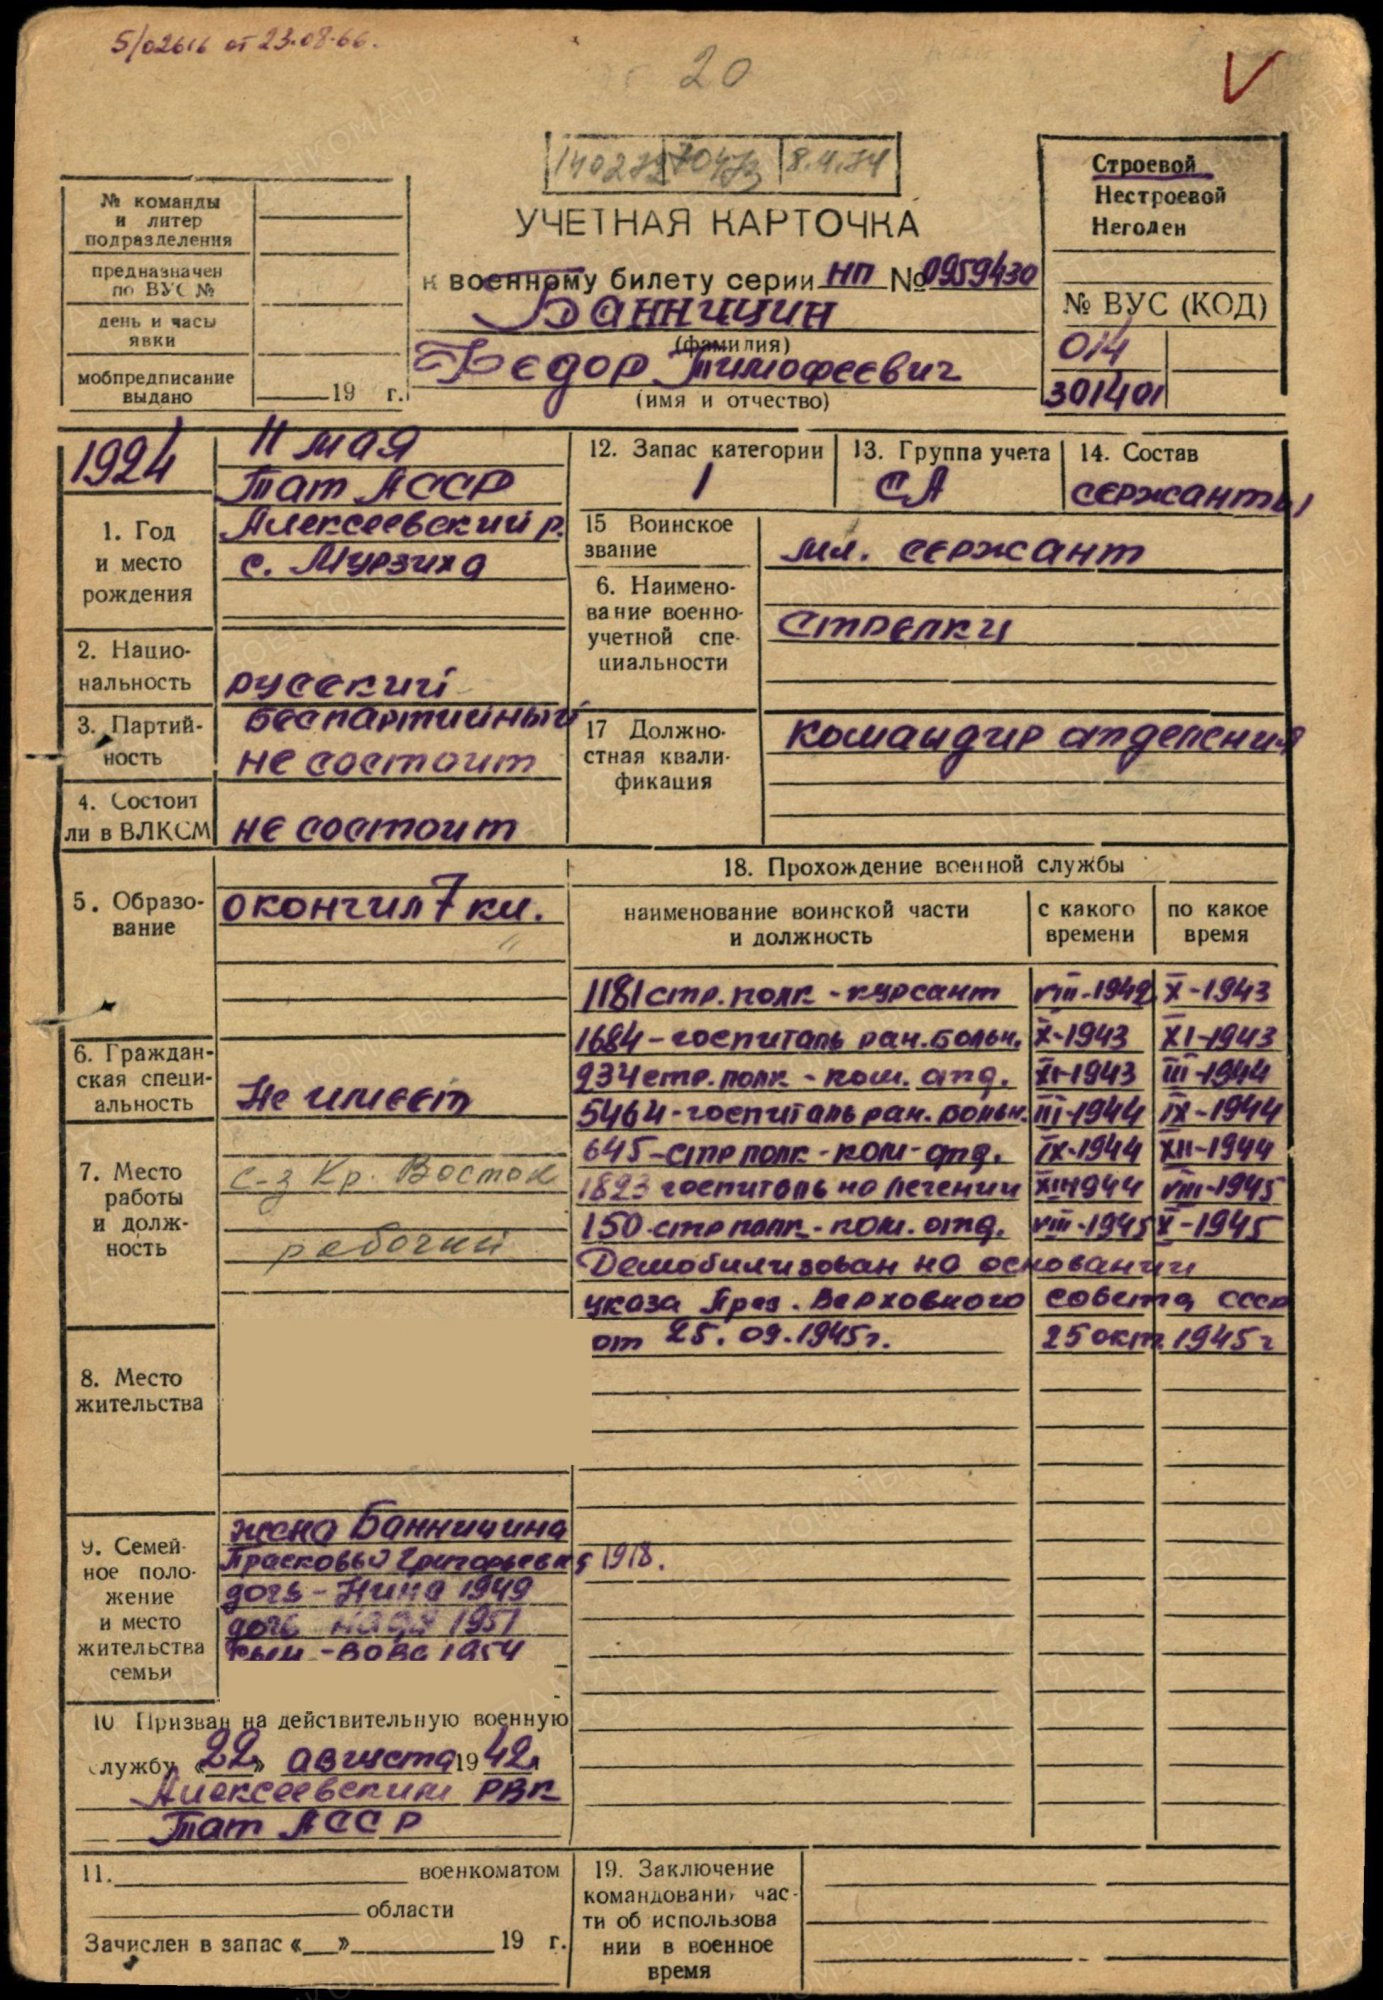 5/02616 от 23.08.66.
20
V
140272 70473 8.4.74
Строевой
Нестроевой
Негоден
№ команды
и литер
подразделения
предназначен
по ВУС №
день и часы
явки
мобпредписание
выдано
19 г.
УЧЕТНАЯ КАРТОЧКА
к военному билету серии НП № 0959430
Банницин
(фамилия)
Федор Тимофеевич
(имя и отчество)
№ ВУС (КОД)
014
301401
1924
11 мая
Тат АССР
Алексеевский р.
с. Мурзиха
1. Год
и место
рождения
2. Нацио-
нальность
русский
3. Партий-
ность
беспартийный
не состоит
4. Состоит
ли в ВЛКСМ
не состоит
12. Запас категории
1
13. Группа учета
СА
14. Состав
сержанты
15 Воинское
звание
мл. сержант
6. Наимено-
вание военно-
учетной спе-
циальности
стрелки
17 Должно-
стная квали-
фикация
командир отделения
5. Образо-
вание
окончил 7 кл.
6. Граждан-
ская специ-
альность
Не имеет
7. Место
работы
и долж-
ность
с-з Кр. Восток
рабочий
8. Место
жительства
9. Семей-
ное поло-
жение
и место
жительства
семьи
жена Банницина
Прасковья Григорьевна 1918.
дочь - Нина 1949
дочь Надя 1951
сын - Вова 1954
10 Призван на действительную военную
службу «22» августа 1942г
Алексеевским РВК
Тат АССР
11. военкоматом
области
Зачислен в запас « » 19 г.
18. Прохождение военной службы
наименование воинской части
и должность
с какого
времени
по какое
время
1181 стр. полк - курсант VIII-1942 X-1943
1684 - госпиталь ран. больн. X-1943 XI-1943
234 стр. полк - ком. отд. XI-1943 III-1944
5464 - госпиталь ран. больн. III-1944 IX-1944
645 - стр полк - ком - отд. IX-1944 XII-1944
1823 госпиталь на лечении XII-1944 VIII-1945
150 - стр полк - ком. отд. VIII-1945 X-1945
Демобилизован на основании
указа През. Верховного совета СССР
от 25.09.1945г. 25 окт. 1945г
19. Заключение
командования час-
ти об использова
нии в военное
время